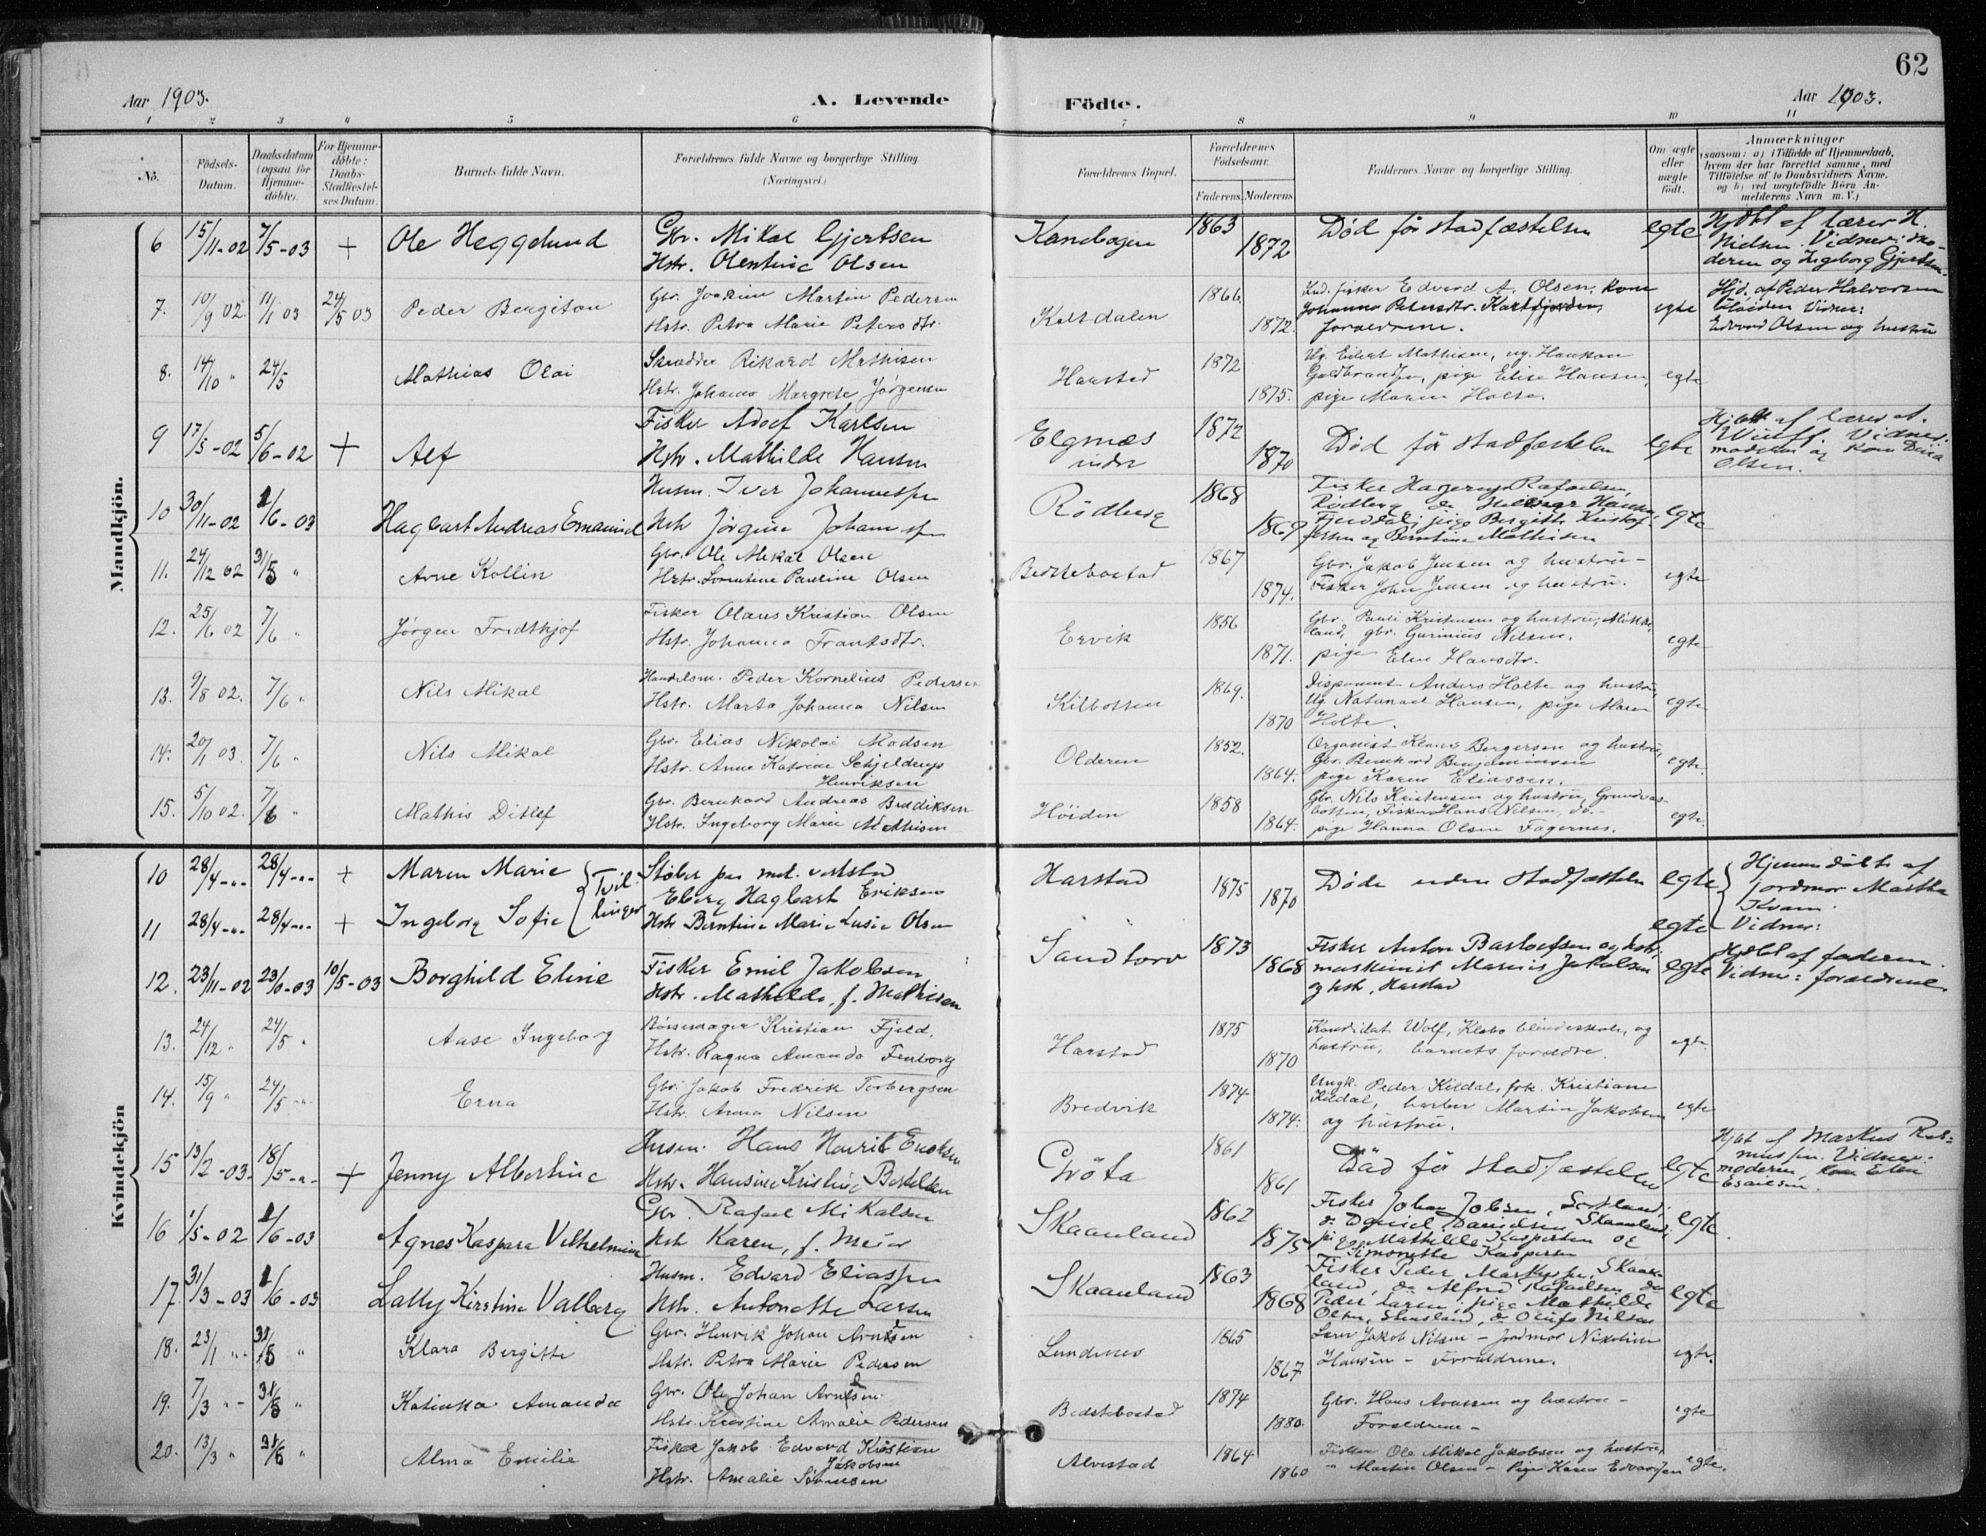 62
Aar 1903.
A. Levende
Födte.
Aar 1903.
1 2 3 4 5 6 7 8 9 10 11
No.
Födsels-Datum.
Daabsdatum (ogsaa for Hjemme-döbte).
For Hjemme-döbte: Daabs-Stadfæstel-ses Datum.
Barnets fulde Navn.
Forældrenes fulde Navne og borgerlige Stilling.
(Næringsvei.)
Forældrenes Bopæl.
Forældrenes Födselsaar.
Faderens. Moderens.
Faddernes Navne og borgerlige Stilling.
Om ægte eller uægte født.
Anmærkninger
(saasom: a) i Tilfælde af Hjemmedaab,
hvem der har forrettet samme, med
Tilföielse af to Daabsvidners Navne,
og b) ved uægtefödte Börn An-
melderens Navn m. V.)
Mandkjön.
6 15/11-02 7/5-03 + Ole Heggelund
Gbr. Mikal Gjertsen
Hstr. Olentine Olsen
Kanebogen 1863 1872
Død før stadfæstelsen egte
Hjdbt af lærer H.
Nielsen. Vidner: mo-
deren og Ingeborg Gjertsen.
7. 10/9 02. 11/1 03 24/5 03 Peder Bergiton
Gbr. Joakim Martin Pedersen
Hstr. Petra Marie Petersdtr.
Kalsdalen 1866. 1872.
Fisker Edvard A. Olsen, kone
Johanna Petersdtr.
forældrene. egte
Hjd. af Peder Halvorsen
Vidner:
Edvard Olsen og hustru
8. 14/10 " 24/5 Mathias Olai
Skrædder Rikard Mathisen
Hstr. Johanna Margrete Jørgensen
Harstad 1872 1875.
Ug. Eilert Mathisen, ug. Haakon
Guldbrandsen, pige Elise Hansen,
pige Maren Holse. egte
9 17/5-02 5/6-02 + Alf
Fisker Adolf Karlsen
Hstr. Mathilde Hansen
Elgnæs
indre 1872 1870
Død før stadfæstelsen egte
Hjdbt af lærer A.
Wulff. Vidner:
moderen og
Olsen.
10 30/11-02 1/6-03 Hagbart Andreas Emanuel
Husm. Iver Johannessen
Hstr Jørgine Johannssen
Rødberg 1868 1869
Fisker Hagerup Rafaelsen,
Rødberg, do Helmer Hansen
Fjeldal; pige Bergitte Kristof-
fersen og Berntine Mathisen egte
11. 24/12 02 31/5 " Arne Kollin
Gbr. Ole Mikal Olsen
Hstr. Lorentine Pauline Olsen
Bedstebostad 1867 1874.
Gbr. Jakob Jensen og hustru -
Fisker John Jensen og hustru. egte
12. 25/6 02 7/6 " Jørgen Fridthjof
Fisker Olaus Kristian Olsen
Hstr. Johanna Frantsdtr.
Ervik 1856 1871.
Gbr. Pauli Kristensen og hustru,
gbr. Gurinius Nilsen.
pige Elen Hansdtr. egte
13. 9/8 02. 7/6 " Nils Mikal
Handelsm. Peder Kornelius Pedersen
Hstr. Marta Johanna Nilsen
Kilbotten 1869. 1870
Disponent Anders Holte og hustru,
Ug. Natanael Hansen, pige Maren
Holte. egte
14. 20/1 03. 7/6 " Nils Mikal
Gbr. Elias Nikolai Madsen
Hstr. Anne Katrine Schjelderup
Henriksen
Olderen 1852. 1864.
Organist Klaus Bergersen og hustru,
Gbr. Bernhard Benjaminsen
pige Karen Eliassen. egte.
15. 5/10 02. 7/6 " Mathis Ditlef
Gbr. Bernhard Andreas Brediksen
Hstr. Ingeborg Marie Mathisen
Høiden 1858 1864.
Gbr. Nils Kristensen og hustru,
Fisker Hans Nilsen, do. -
pige Hanna Olsen Fagernes. egte.
Kvindekjön
10 28/4 - " - 28/4 - " - + Maren Marie
11 28/4 - " - 28/4 - " - + Ingeborg Sofie
Tvil-
linger
Støber paa mek. verksted
Eberg Hagbart Eriksen
Hstr Berntine Marie Lusie Olsen
Harstad 1875 1870
Døde uden stadfæstelse egte
egte
Hjemmedøbte af
jordmor Martha
Kvam.
Vidner:
12. 23/11-02 23/0-03 10/5-03 Borghild Eline
Fisker Emil Jakobsen
Hstr. Mathilde, f. Mathisen
Sandtorv 1873 1868
Fisker Anton Bartolfsen og hstr,
maskinist Marius Jakobsen
og hstr, Harstad egte
Hjdbt af faderen.
Vidner: forældrene.
13. 24/12 " 24/5 " Aase Ingeborg
Børsemager Kristian Fjeld.
Hstr. Ragna Amanda Finborg
Harstad 1875 1870
Kandidat Wolf, Klæbo blindeskole, og
hustru, barnets forældre. egte.
14. 15/9 " 24/5 - " - Erna
Gbr. Jakob Fredrik Torbergsen
Hstr. Anna Nilsen
Bredvik 1874 1874.
Ungk. Peder Kildal, frk. Kristiane
Kildal, barber Martin Jakobsen
og hustru. egte
15 13/2-03. 18/5 - " - + Jenny Albertine
Husm. Hans Henrik Eriksen
Hstr. Hansine Kristine Bertelsen
Grøta 1861 1861
Død før stadfæstelsen egte
Hjdbt af Markus Ras-
mussen. Vidner:
moderen, kone Elen
Esaiesen.
16 1/5-02 1/6-03 Agnes Kaspara Vilhelmine
Gbr. Rafael Mikalsen
Hstr Karen, f. Meier
Skaanland 1862 1875
Fisker Johan Jobsen, Sørland;
do Daniel Danielsen, Skaanland,
pige Mathilde Kaspersen og
Simonette Kaspersen egte.
17. 31/3-03 1/6-03 Lally Kirstine Valborg
Husm. Edvard Eliassen
Hstr. Antonette Larsen
Skaanland 1863 1868
Fisker Peder Markussen, Skaan-
land, do Alfred Rafaelsen, do
Peder Larsen; pige Mathilde
Olsen, do Oluf Nilsen egte
18. 23/1 - " - 31/5 " Klara Bergitte
Gbr. Henrik Johan Arntsen
Hstr. Petra Marie Pedersen
Lundenes 1865 1867
Lærer Jakob Nilsen - Jordmor Nikoline
Hansen - Forældrene. egte.
19. 7/3 - " - 31/5 " Katinka Amanda
Gbr. Ole Johan Arntsen
Hstr. Kristine Amalie Pedersen
Bedstebostad 1874 1880.
Gbr. Hans Arntsen og hustru -
Forældrene - egte
20. 13/3 " 31/5 " Alma Emilie
Fisker Jakob Edvard Kristian
Jakobsen
Hstr. Amalie Sørensen
Alvestad 1864. 1860
Fisker Ole Mikal Jakobsen og hustru,
" Martin Olsen - Pige Karen Edvardsen egte.